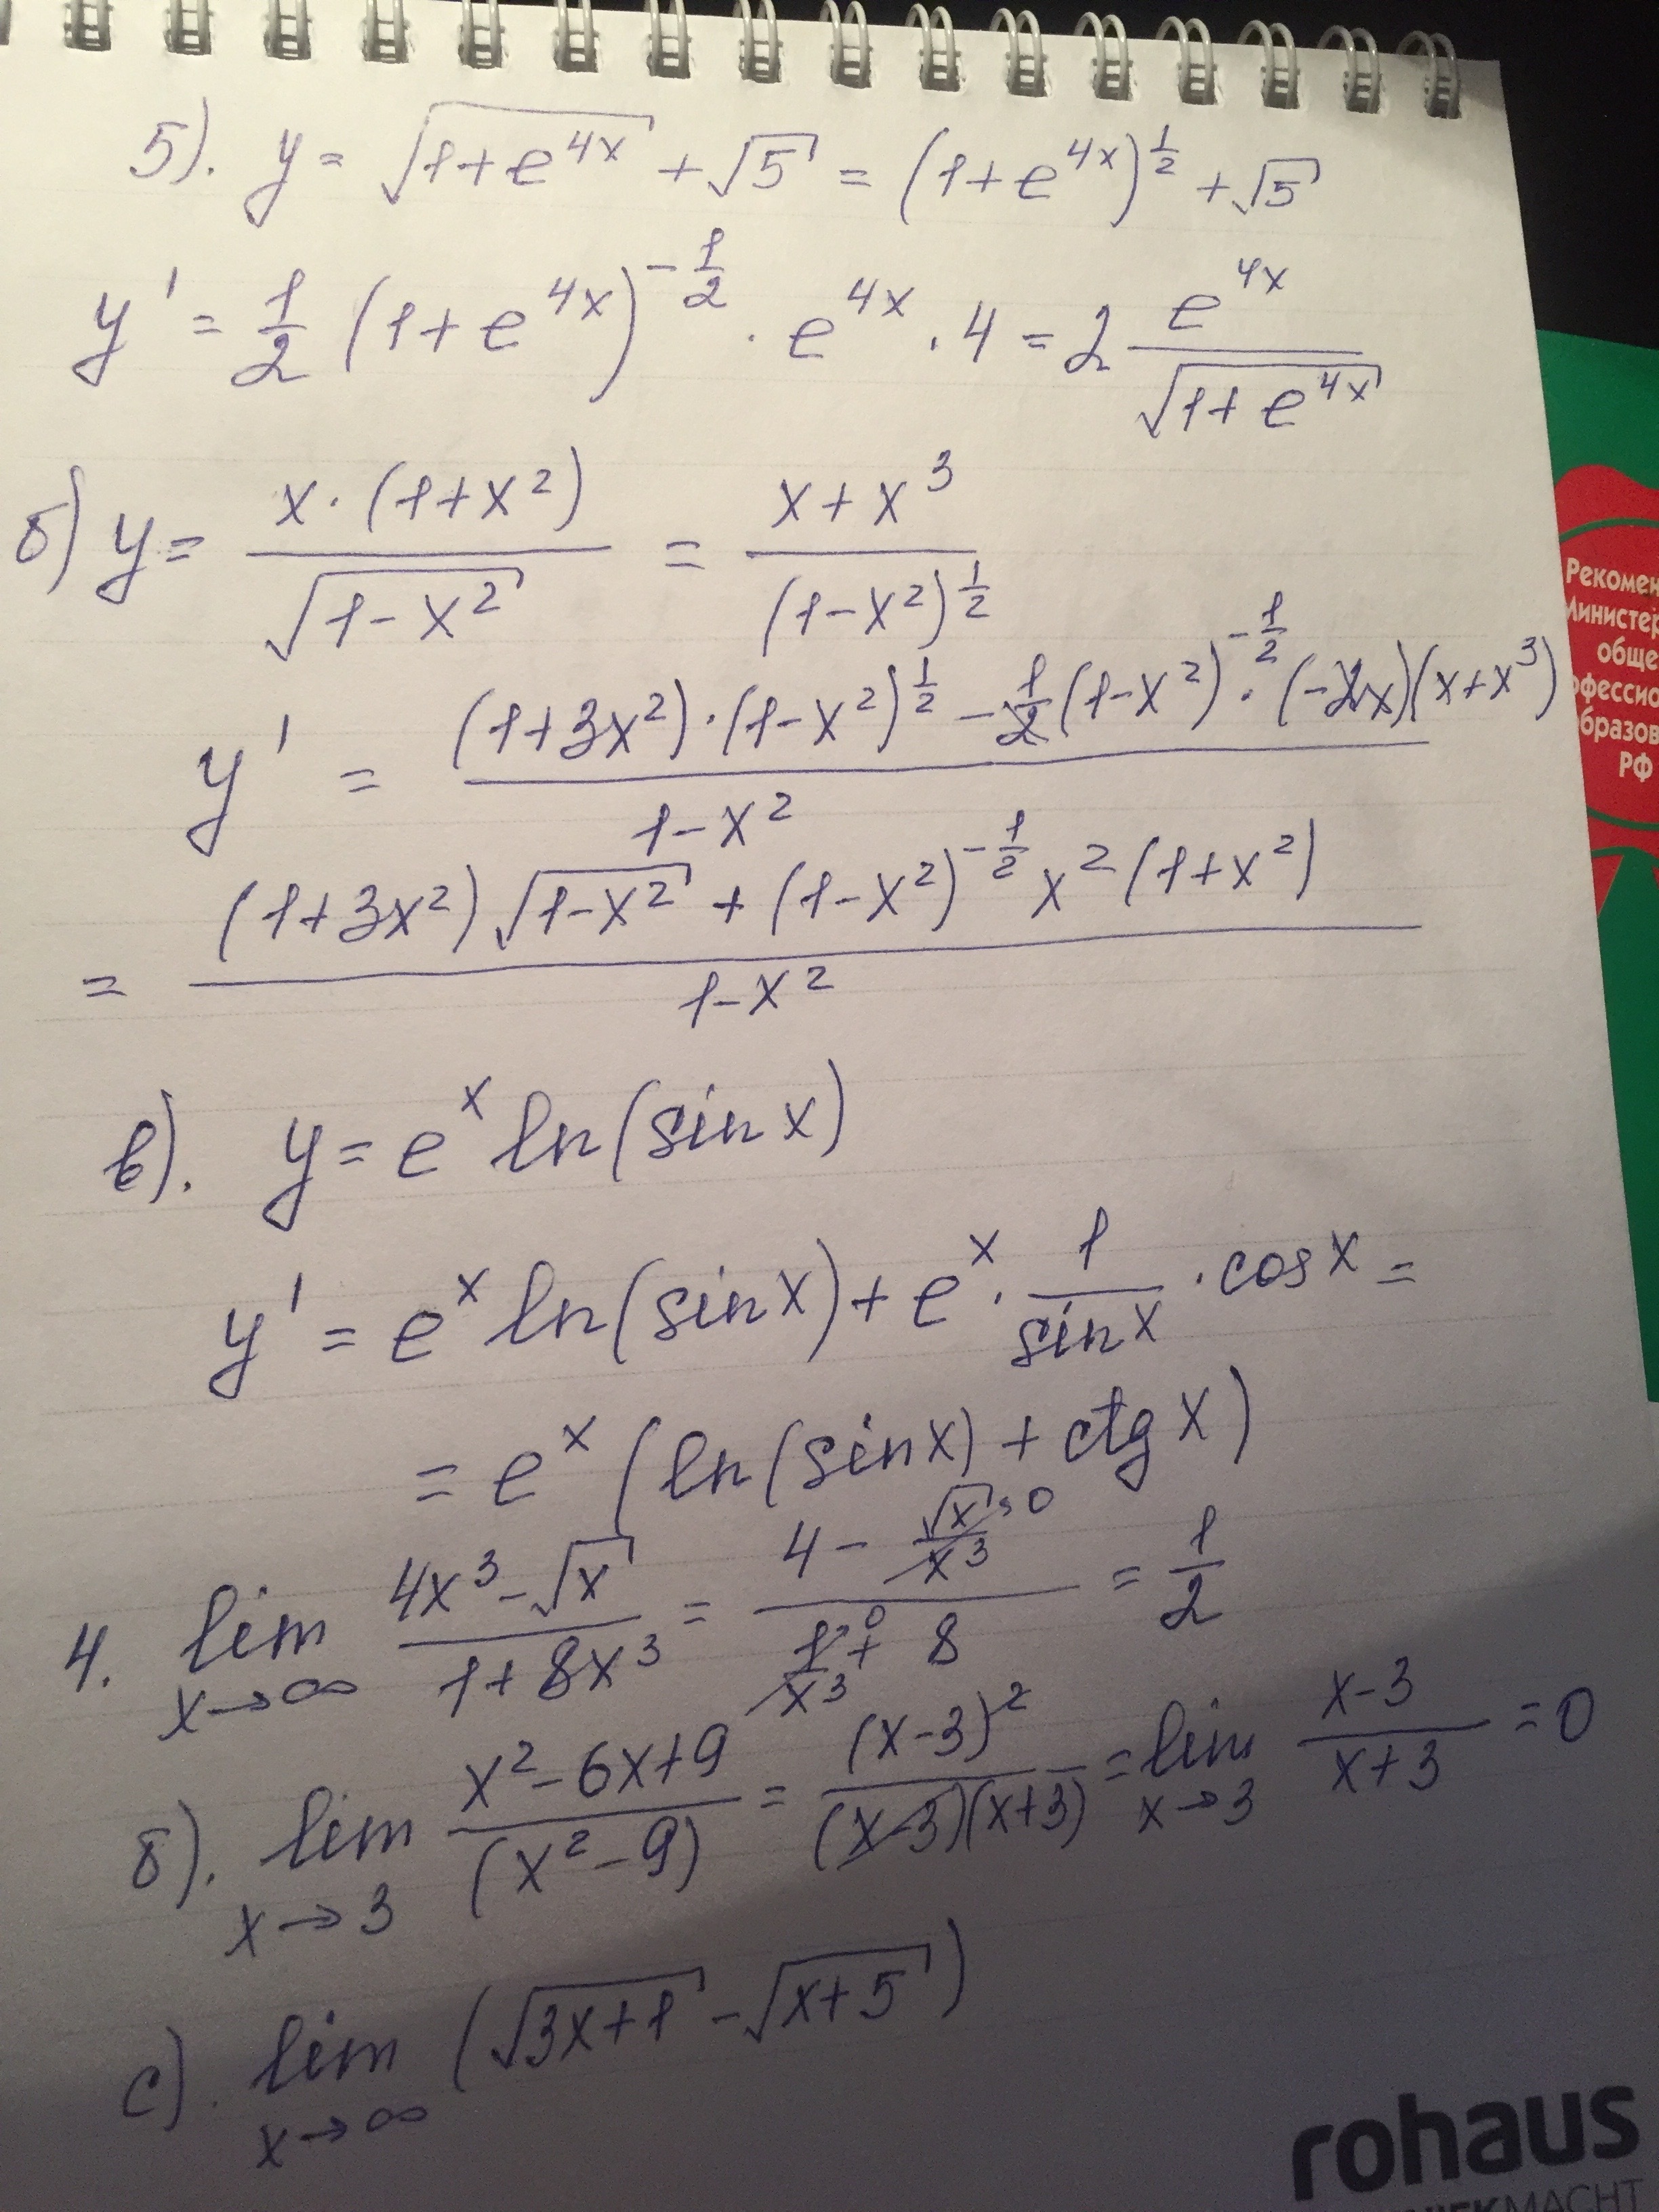 5). y = √(1+e^(4x)) + √5 = (1+e^(4x))^(1/2) + √5
y' = 1/2 (1+e^(4x))^(-1/2) · e^(4x) · 4 = 2 e^(4x)/√(1+e^(4x))
б) y = x·(1+x²)/√(1-x²) = (x+x³)/(1-x²)^(1/2)
y' = ((1+3x²)·(1-x²)^(1/2) - 1/2(1-x²)^(-1/2)·(-2x)(x+x³))/(1-x²)
= ((1+3x²)√(1-x²) + (1-x²)^(-1/2) x²(1+x²))/(1-x²)
в). y = e^x ln(sin x)
y' = e^x ln(sin x) + e^x · 1/sin x · cos x =
= e^x (ln(sin x) + ctg x)
4. lim x→∞ (4x³-√x)/(1+8x³) = (4 - √x/x³ →0)/(1/x³ →0 + 8) = 1/2
б). lim x→3 (x²-6x+9)/(x²-9) = (x-3)²/((x-3)(x+3)) = lim x→3 (x-3)/(x+3) = 0
c). lim x→∞ (√(3x+1) - √(x+5))
Рекомен
Министер
обще
офессио
образов
РФ
rohaus
MACHT